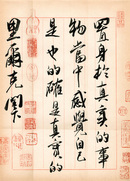 置身於真實的事
物當中感覺自己
是也的確是真實的
里爾克閣下